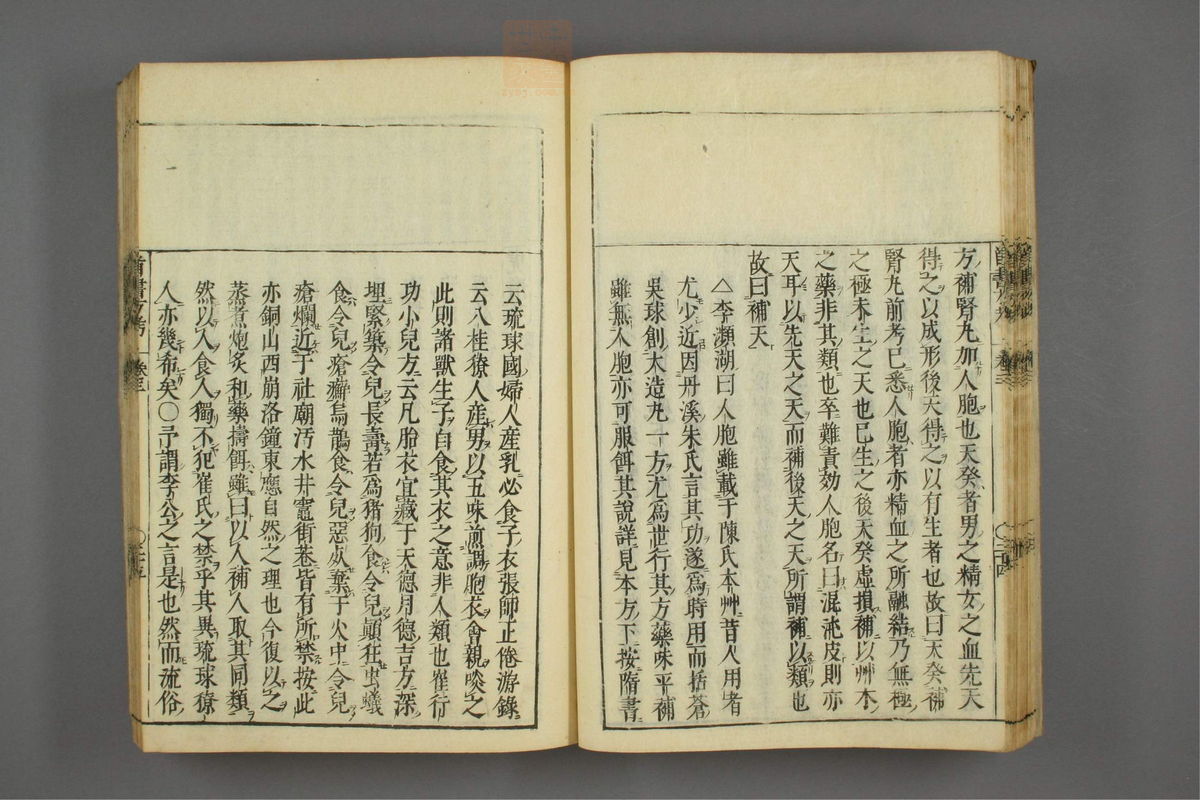 方補腎丸加人胞也天癸者男之精女之血先天
得之以成形後天得之以有生者也故曰天癸補
腎丸前考已悉人胞者亦精血之所融結乃無極
之極未生之天也已生之後天癸虛損補以艸木
之藥非其類也卒難責効人胞名曰混沌皮則亦
天耳以先天之天而補後天之天所謂補以類也
故曰補天
△李瀕湖曰人胞雖載于陳氏本艸昔人用者
尤少近因丹溪朱氏言其功遂爲時用而括蒼
吳球創大造丸一方尤爲世行其方藥味平補
雖無人胞亦可服餌其說詳見本方下按隋書
云琉球國婦人産乳必食子衣張師正倦游錄
云八桂獠人産男以五味煎調胞衣會親啖之
此則諸獸生子自食其衣之意非人類也崔行
功小兒方云凡胎衣宜藏于天德月德吉方深
埋緊築令兒長壽若爲猪狗食令兒顚狂虫蟻
食令兒瘡癬烏鵲食令兒惡死棄于火中令兒
瘡爛近于社廟汚水井竈街巷皆有所禁按此
亦銅山西崩洛鐘東應自然之理也今復以之
蒸煮炮炙和藥擣餌雖曰以人補人取其同類
然以人食人獨不犯崔氏之禁乎其異琉球獠
人亦幾希矣〇予謂李公之言是也然而流俗